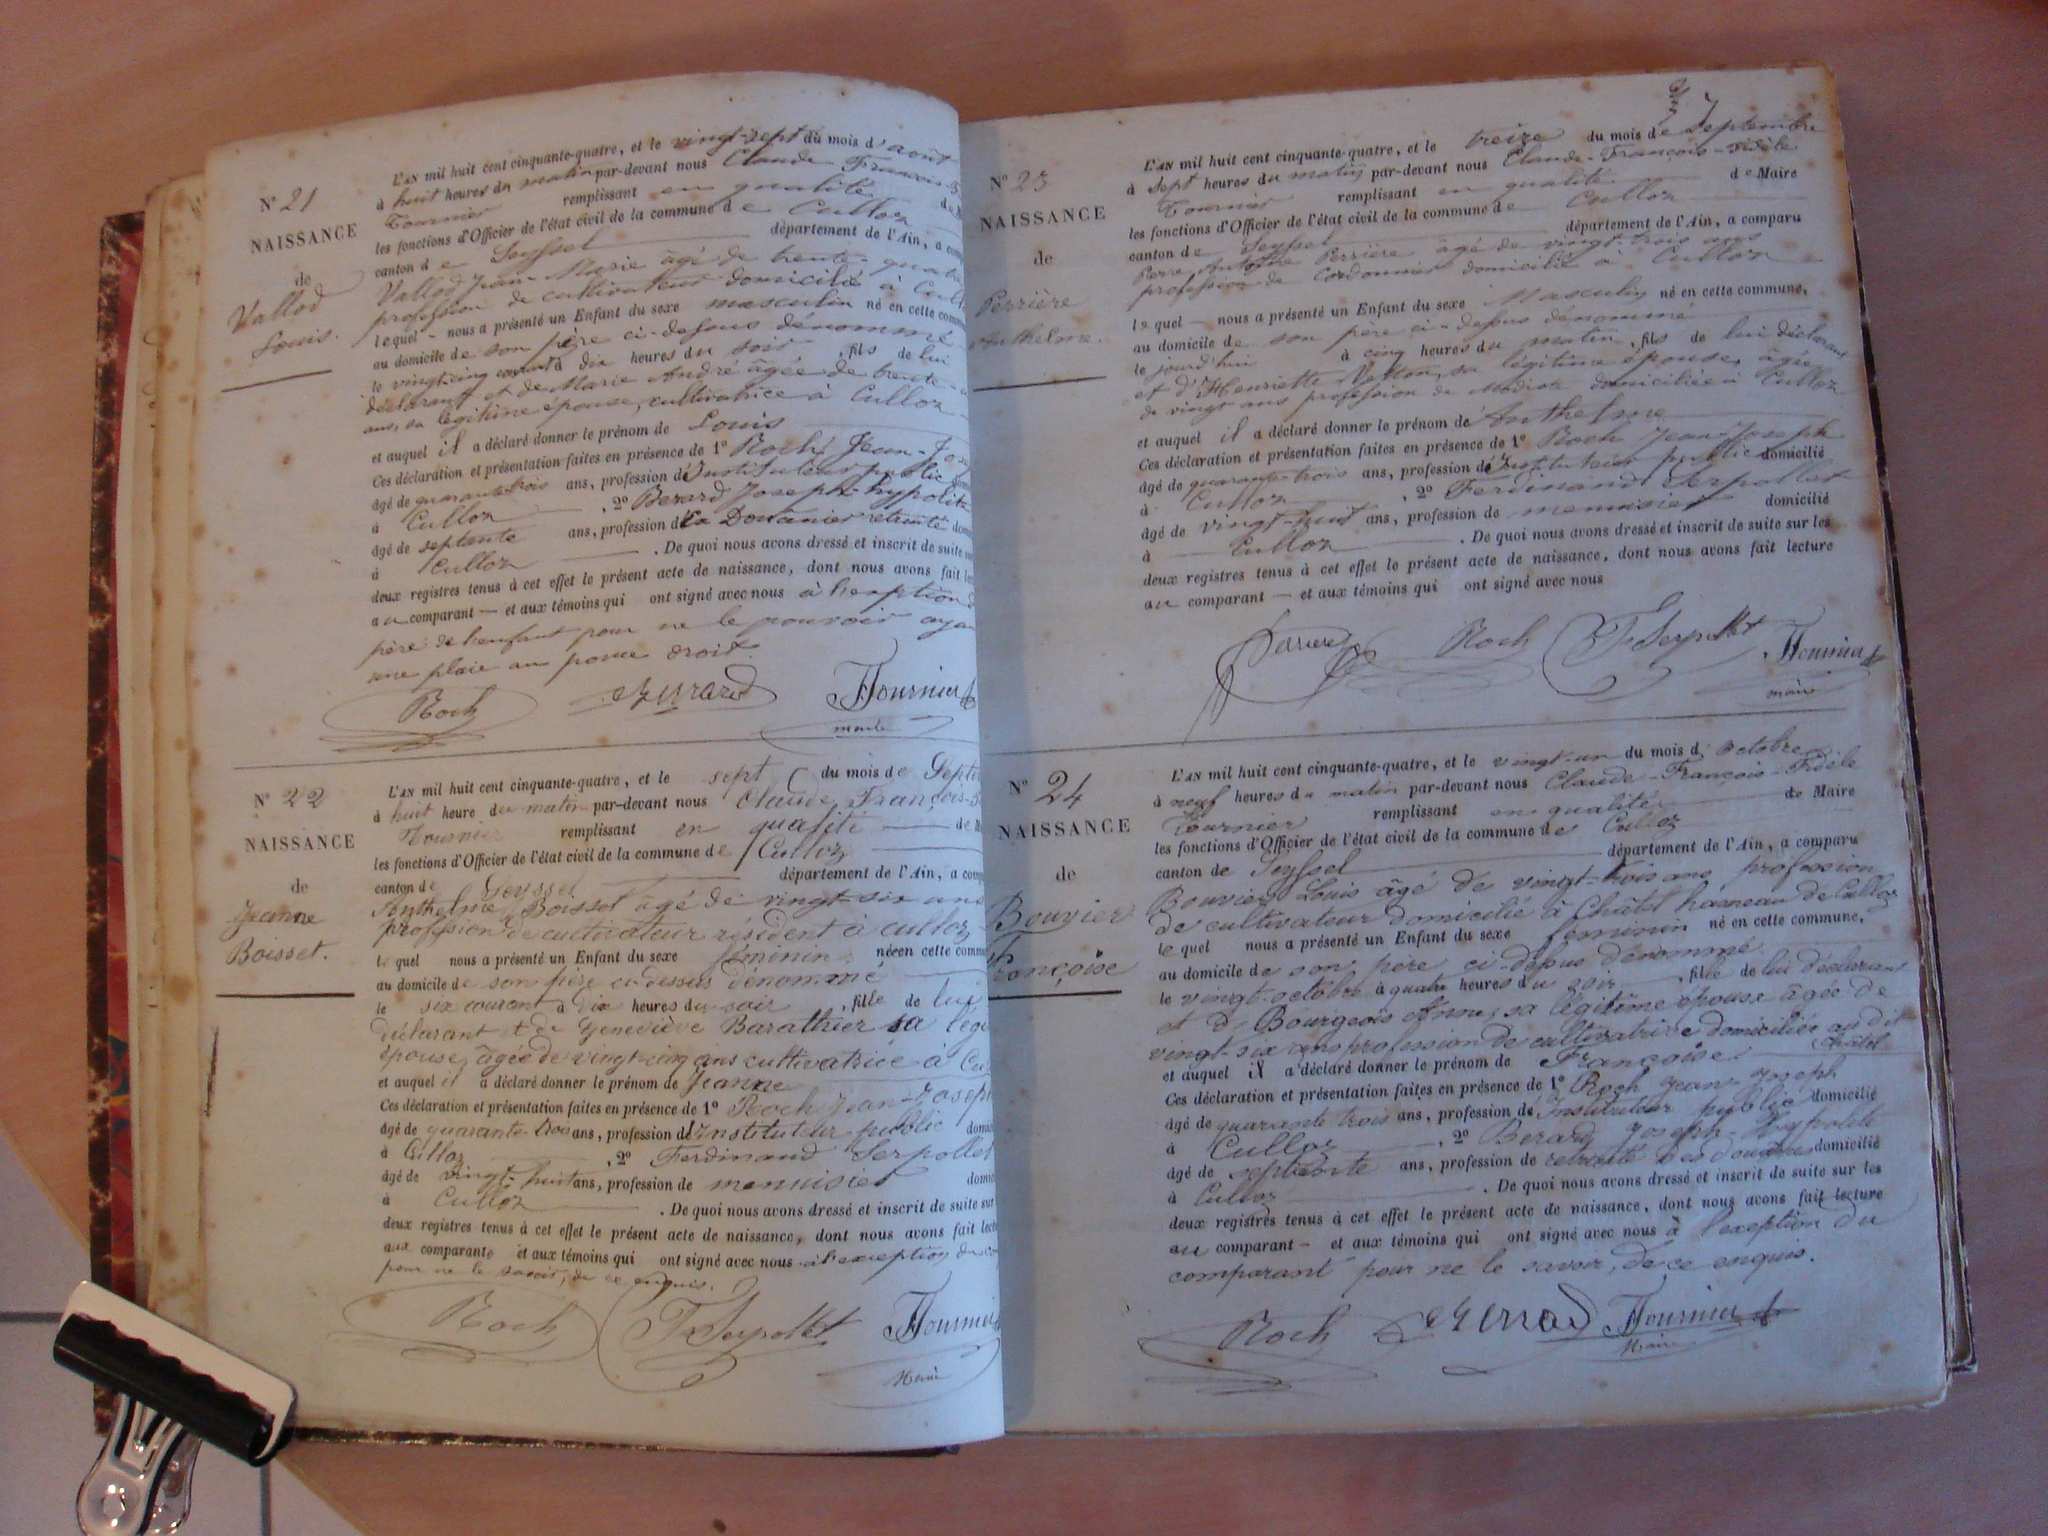 N° 21
NAISSANCE
de
Vallod
Louis.
L'AN mil huit cent cinquante-quatre, et le vingt-sept du mois d'août
à huit heures du matin par-devant nous Claude François
Tournier remplissant en qualité de
les fonctions d'Officier de l'état civil de la commune de Culloz
canton de Seyssel département de l'Ain, a
Vallod Jean-Marie âgé de trente-quatre
profession de cultivateur domicilié à
lequel nous a présenté un Enfant du sexe masculin né en cette
au domicile de son père ci-dessus dénommé
le vingt-cinq courant à dix heures du soir, fils de lui
déclarant et de Marie André âgée de trente
ans, sa légitime épouse, cultivatrice à Culloz
et auquel il a déclaré donner le prénom de Louis
Ces déclaration et présentation faites en présence de 1° Roch Jean-
âgé de quarante-trois ans, profession d'Instituteur public
à Culloz, 2° Berard Joseph-hypolite
âgé de septante ans, profession de Douanier retraité
à Culloz. De quoi nous avons dressé et inscrit de suite
deux registres tenus à cet effet le présent acte de naissance, dont nous avons fait
au comparant — et aux témoins qui ont signé avec nous à l'exeption
père de l'enfant pour ne le pouvoir
une plaie au pouce droit.
Roch Berard Tournier
maire
N° 22
NAISSANCE
de
Jeanne
Boisset.
L'AN mil huit cent cinquante-quatre, et le sept du mois de
à huit heure du matin par-devant nous Claude François
Tournier remplissant en qualité de
les fonctions d'Officier de l'état civil de la commune de Culloz
canton de Seyssel département de l'Ain, a
Anthelme Boisset âgé de vingt-six ans
profession de cultivateur résident à Culloz
lequel nous a présenté un Enfant du sexe féminin née en cette
au domicile de son père ci-dessus dénommé
le six courant à dix heures du soir, fille de lui
déclarant et de Geneviève Barathier sa
épouse, âgée de vingt-cinq ans cultivatrice à
et auquel il a déclaré donner le prénom de Jeanne
Ces déclaration et présentation faites en présence de 1° Roch Jean-Joseph
âgé de quarante-trois ans, profession d'Instituteur public
à Culloz, 2° Ferdinand Serpollet
âgé de vingt-huit ans, profession de menuisier
à Culloz. De quoi nous avons dressé et inscrit de suite sur
deux registres tenus à cet effet le présent acte de naissance, dont nous avons fait
aux comparants et aux témoins qui ont signé avec nous à l'exception du
pour ne le savoir, de ce enquis.
Roch F Serpollet Tournier
Maire
7
N° 23
NAISSANCE
de
Perrière
Anthelme.
L'AN mil huit cent cinquante-quatre, et le treize du mois de Septembre
à Sept heures du matin par-devant nous Claude-François-Fidèle
Tournier remplissant en qualité de Maire
les fonctions d'Officier de l'état civil de la commune de Culloz
canton de Seyssel département de l'Ain, a comparu
Perrière âgé de vingt-trois ans
profession de Cordonnier domicilié à Culloz
lequel — nous a présenté un Enfant du sexe Masculin né en cette commune,
au domicile de son père ci-dessus dénommé
le jourd'hui à cinq heures du matin, fils de lui déclarant
et d'Henriette sa légitime épouse, âgée
de vingt ans profession de Modiste domiciliée à Culloz
et auquel il a déclaré donner le prénom de Anthelme
Ces déclaration et présentation faites en présence de 1° Roch Jean-Joseph
âgé de quarante-trois ans, profession d'Instituteur public domicilié
à Culloz, 2° Ferdinand Serpollet
âgé de vingt-huit ans, profession de menuisier domicilié
à Culloz. De quoi nous avons dressé et inscrit de suite sur les
deux registres tenus à cet effet le présent acte de naissance, dont nous avons fait lecture
au comparant — et aux témoins qui ont signé avec nous
Perrière Roch F Serpollet Tournier
maire
N° 24
NAISSANCE
de
Bouvier
Françoise
L'AN mil huit cent cinquante-quatre, et le vingt-un du mois d'Octobre
à neuf heures du matin par-devant nous Claude-François-Fidèle
Tournier remplissant en qualité de Maire
les fonctions d'Officier de l'état civil de la commune de Culloz
canton de Seyssel département de l'Ain, a comparu
Bouvier Louis âgé de vingt-trois ans profession
de cultivateur domicilié à Châtel hameau de Culloz
lequel nous a présenté un Enfant du sexe féminin né en cette commune,
au domicile de son père ci-dessus dénommé
le vingt octobre à quatre heures du soir, fille de lui déclarant
et de Bourgeois Anne, sa légitime épouse âgée de
vingt-six ans profession de cultivatrice domiciliée au dit
Châtel
et auquel il a déclaré donner le prénom de Françoise
Ces déclaration et présentation faites en présence de 1° Roch Jean-Joseph
âgé de quarante trois ans, profession d'Instituteur public domicilié
à Culloz, 2° Berard Joseph-Hypolite
âgé de septante ans, profession de retraité des douanes domicilié
à Culloz. De quoi nous avons dressé et inscrit de suite sur les
deux registres tenus à cet effet le présent acte de naissance, dont nous avons fait lecture
au comparant — et aux témoins qui ont signé avec nous à l'exeption du
comparant pour ne le savoir, de ce enquis.
Roch Berard Tournier
Maire